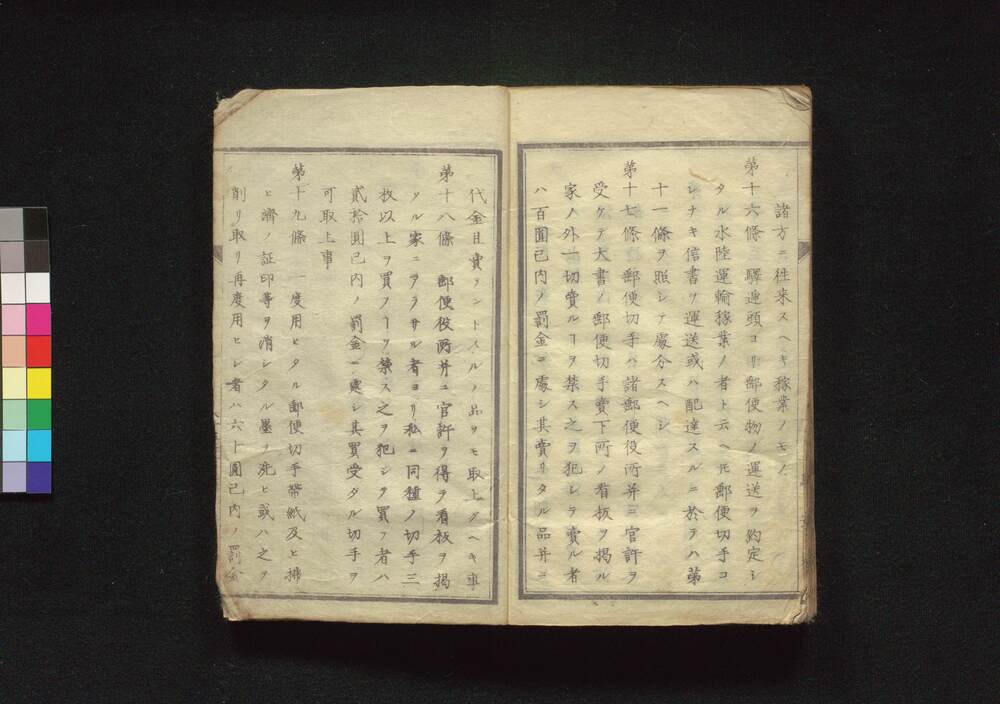 諸方ニ往来スヘキ稼業ノモノ
第十六條 驛逓頭ヨリ郵便物ノ運送ヲ約定シ
タル水陸運輸稼業ノ者ト云ヘ𪜈郵便切手コ
レナキ信書ヲ運送或ハ配達スルニ於テハ第
十一條ヲ照シテ處分スヘシ
第十七條 郵便切手ハ諸郵便役所并ニ官許ヲ
受ケテ大書ノ郵便切手賣下所ノ看板ヲ掲ル
家ノ外一切賣ルヿヲ禁ス之ヲ犯シテ賣ル者
ハ百圓已内ノ罰金ニ處シ其賣リタル品并ニ
代金且賣ラントスルノ品ヲモ取上クヘキ事
第十八條 郵便役所并ニ官許ヲ得テ看板ヲ掲
ツル家ニアラサル者ヨリ私ニ同種ノ切手三
枚以上ヲ買フヿヲ禁ス之ヲ犯シテ買フ者ハ
貳拾圓已内ノ罰金ニ處シ其買受タル切手ヲ
可取上事
第十九條 一度用ヒタル郵便切手帯紙及ヒ拂
ヒ濟ノ証印等ヲ消シタル墨ヲ洗ヒ或ハ之ヲ
削リ取リ再度用ヒシ者ハ六十圓已内ノ罰金